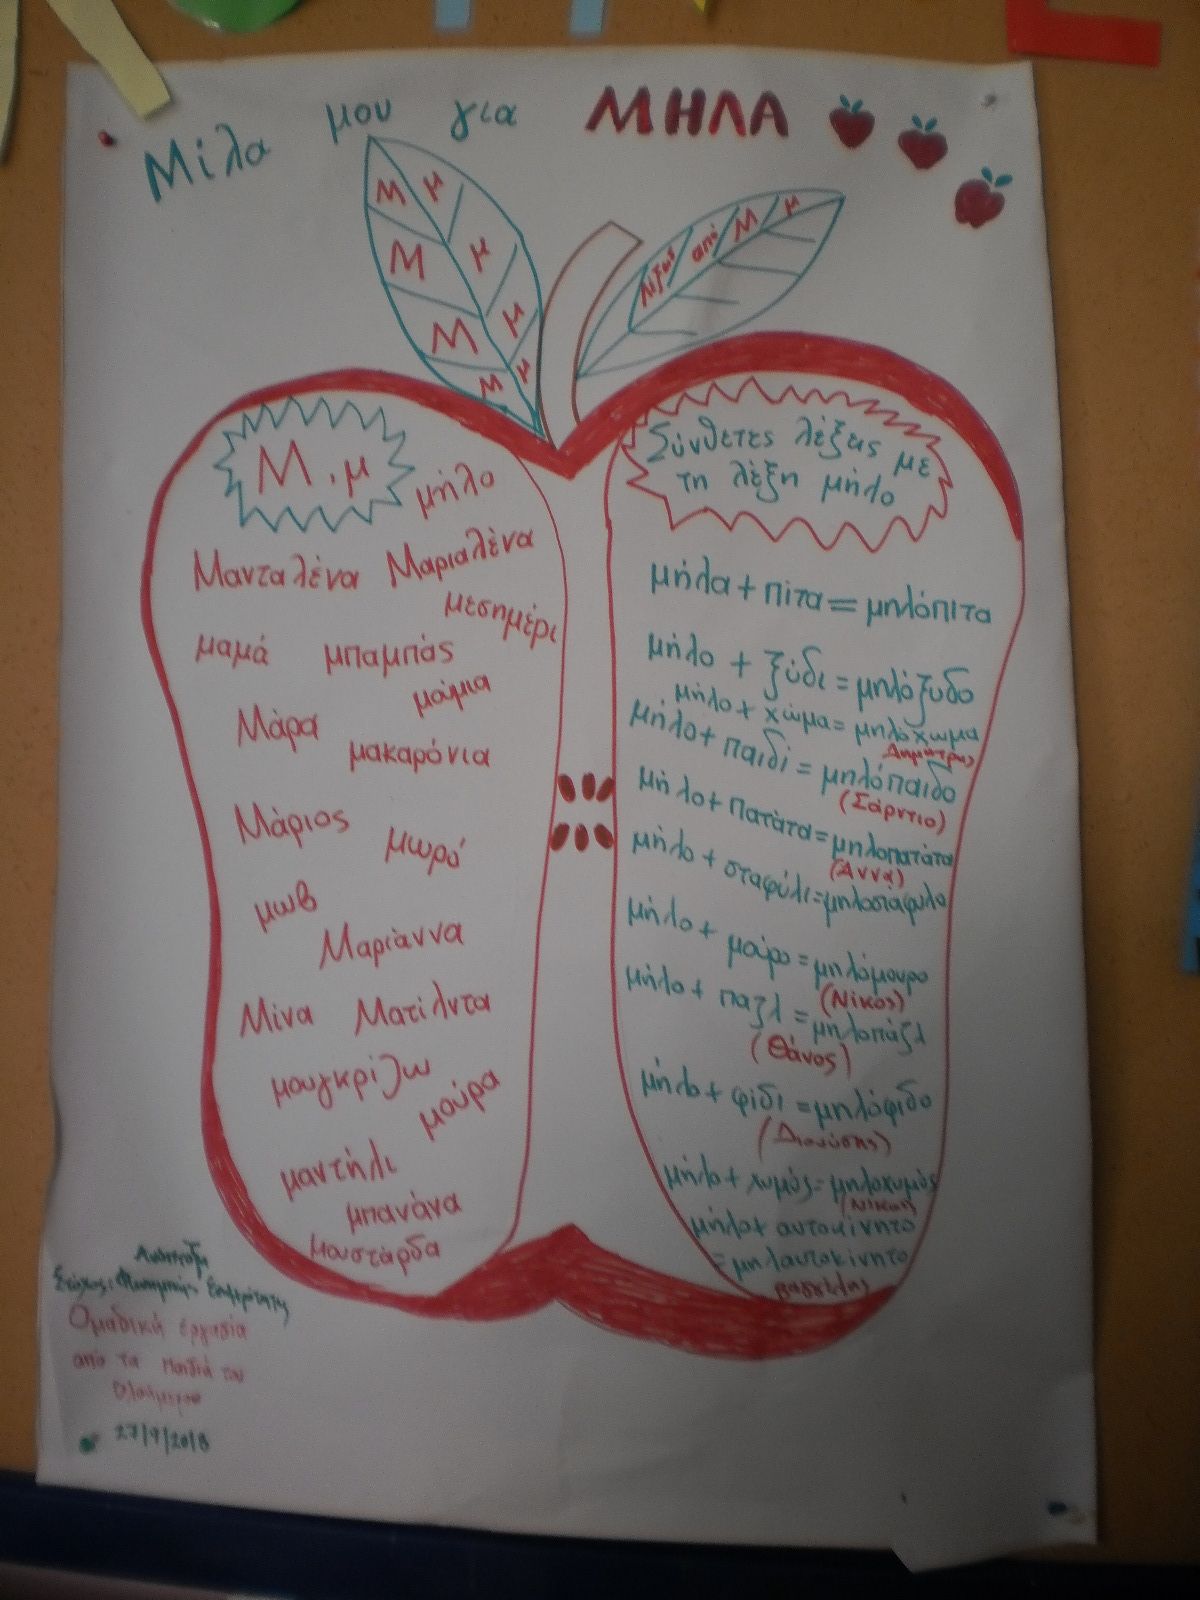 Μίλα μου για ΜΗΛΑ
Μ μ
Μ μ
Μ μ
Μ μ
λέξεις από Μ μ
Μ , μ
μήλο
Μανταλένα Μαριαλένα
μεσημέρι
μαμά μπαμπάς
μάμια
Μάρα
μακαρόνια
Μάριος
μωρό
μωβ
Μαριάννα
Μίνα Ματίλντα
μουγκρίζω
μούρα
μαντήλι
μπανάνα
μουστάρδα
Σύνθετες λέξεις με
τη λέξη μήλο
μήλα + πίτα = μηλόπιτα
μήλο + ξύδι = μηλόξυδο
μήλο + χώμα = μηλόχωμα
Δημήτρης
μήλο + παιδί = μηλόπαιδο
(Σάρντιο)
μήλο + πατάτα = μηλοπατάτα
(Άννα)
μήλο + σταφύλι = μηλοστάφυλο
μήλο + μούρο = μηλόμουρο
(Νίκος)
μήλο + παζλ = μηλοπάζλ
(Θάνος)
μήλο + φίδι = μηλόφιδο
(Διονύσης)
μήλο + χυμός = μηλοχυμός
(Νίκος)
μήλο + αυτοκίνητο
= μηλαυτοκίνητο
Βαγγέλης
Ομαδική εργασία
από τα παιδιά του
Ολοήμερου
27/9/2018